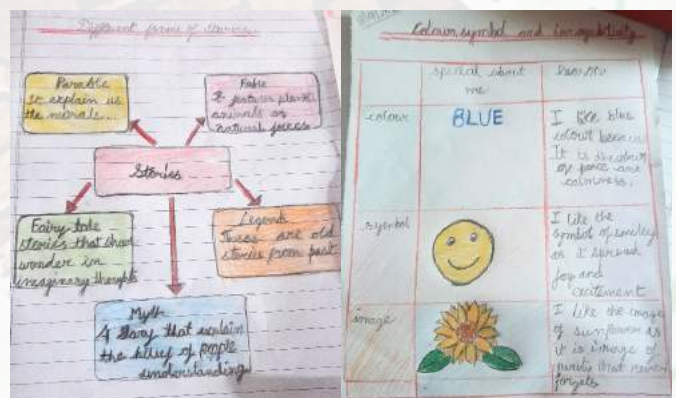 Different forms of stories
Parable
It explain us
the morals...
Fable
It features plants
animals or
natural forces
Stories
Fairy tale
stories that
wonder in
imaginary thoughts
Legend
These are old
stories from past
Myth
A story that explain
the of people
understanding
Colour, symbol and
special about
me
colour
BLUE
I like blue
colour because
It is the colour
of peace and
calmness.
symbol
I like the
symbol of smiley
as I spread
joy and
excitement
image
I like the image
of sunflower as
it is image of
that never
forgets